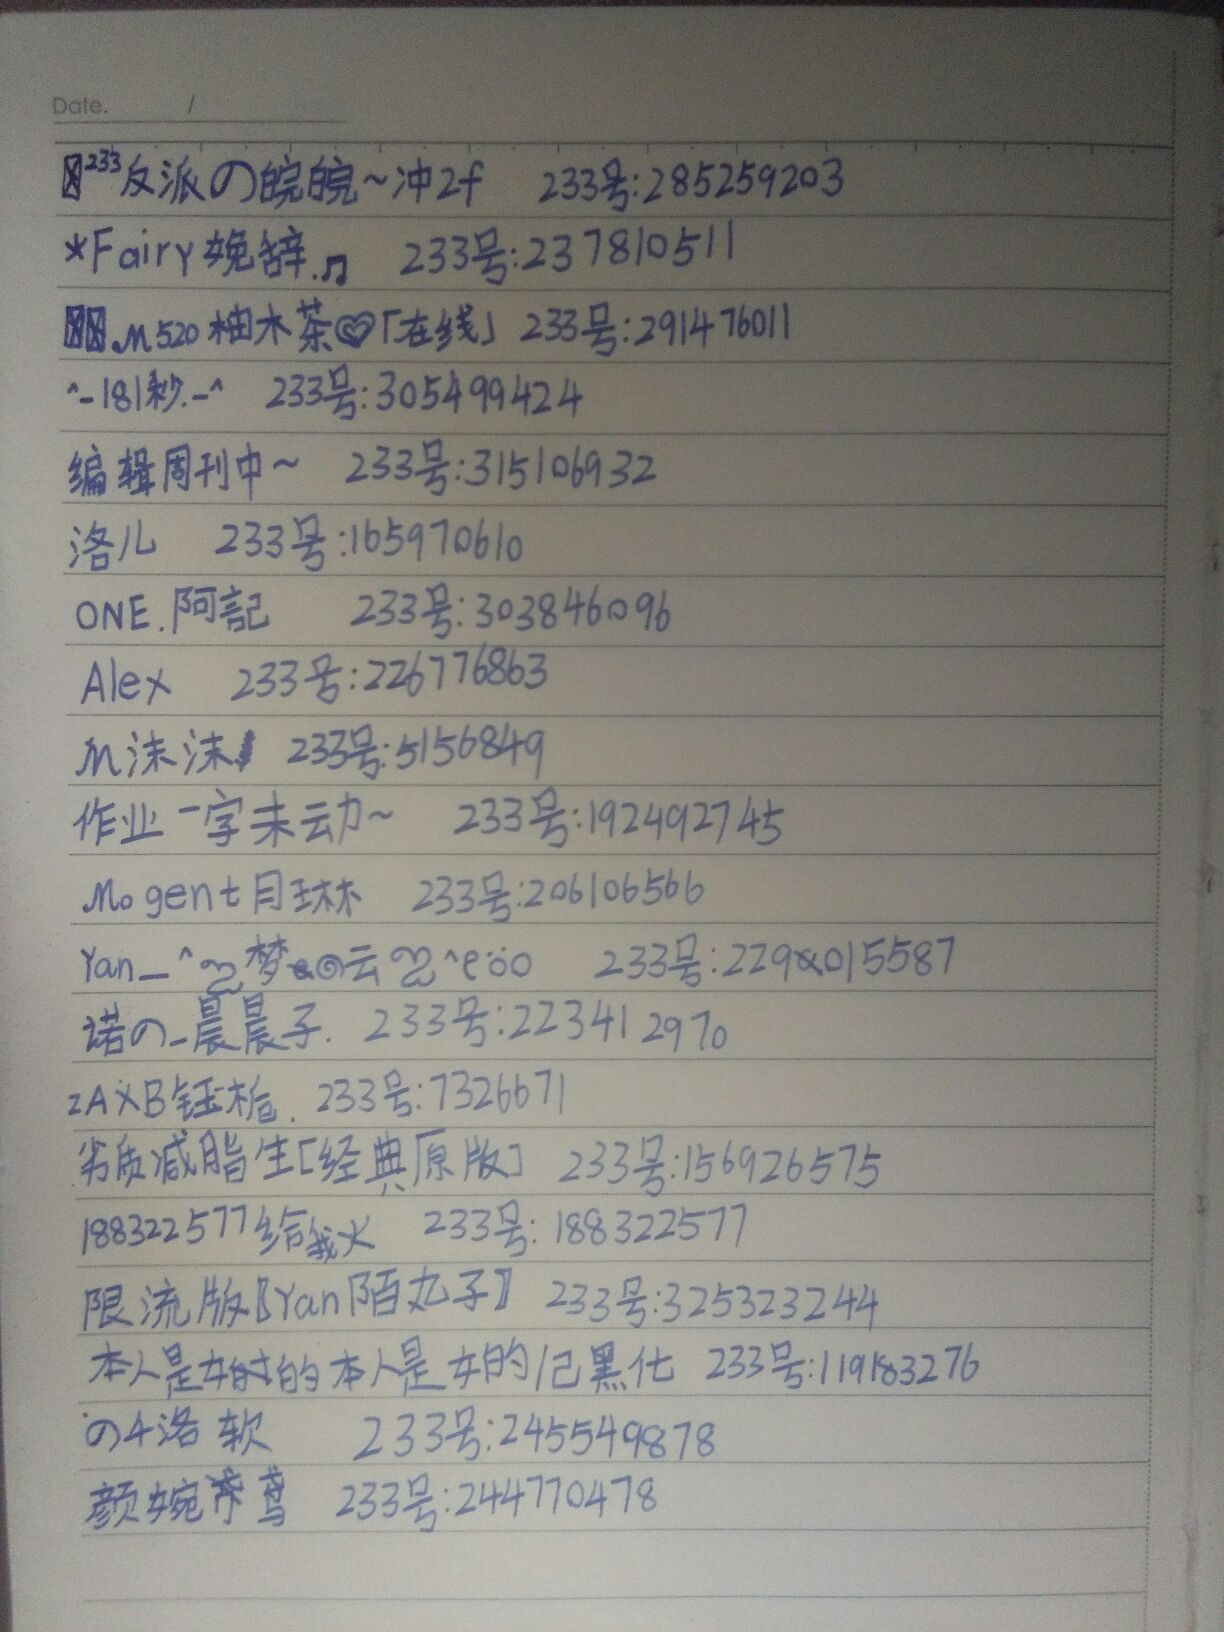 Date. /
233反派の皖皖~冲2f 233号:285259203
*Fairy娩辞.♫ 233号:237810511
M520柚木茶♡「在线」 233号:291476011
^-181秒.-^ 233号:305499424
编辑周刊中~ 233号:315106932
洛儿 233号:165970610
ONE.阿記 233号:303846096
Alex 233号:226776863
M沫沫 233号:5156849
作业一字未动~ 233号:192492745
Mogent月琳 233号:206106566
Yan_^ 梦 云 ^ 233号:229015587
诺の_晨晨子. 233号:223412970
ZAXB钰栀. 233号:7326671
劣质减脂生[经典原版] 233号:156926575
188322577给我火 233号:188322577
限流版〖Yan陌丸子〗 233号:325323244
本人是女的本人是女的/已黑化 233号:119183276
の4洛软 233号:245549878
颜婉鸢 233号:244770478